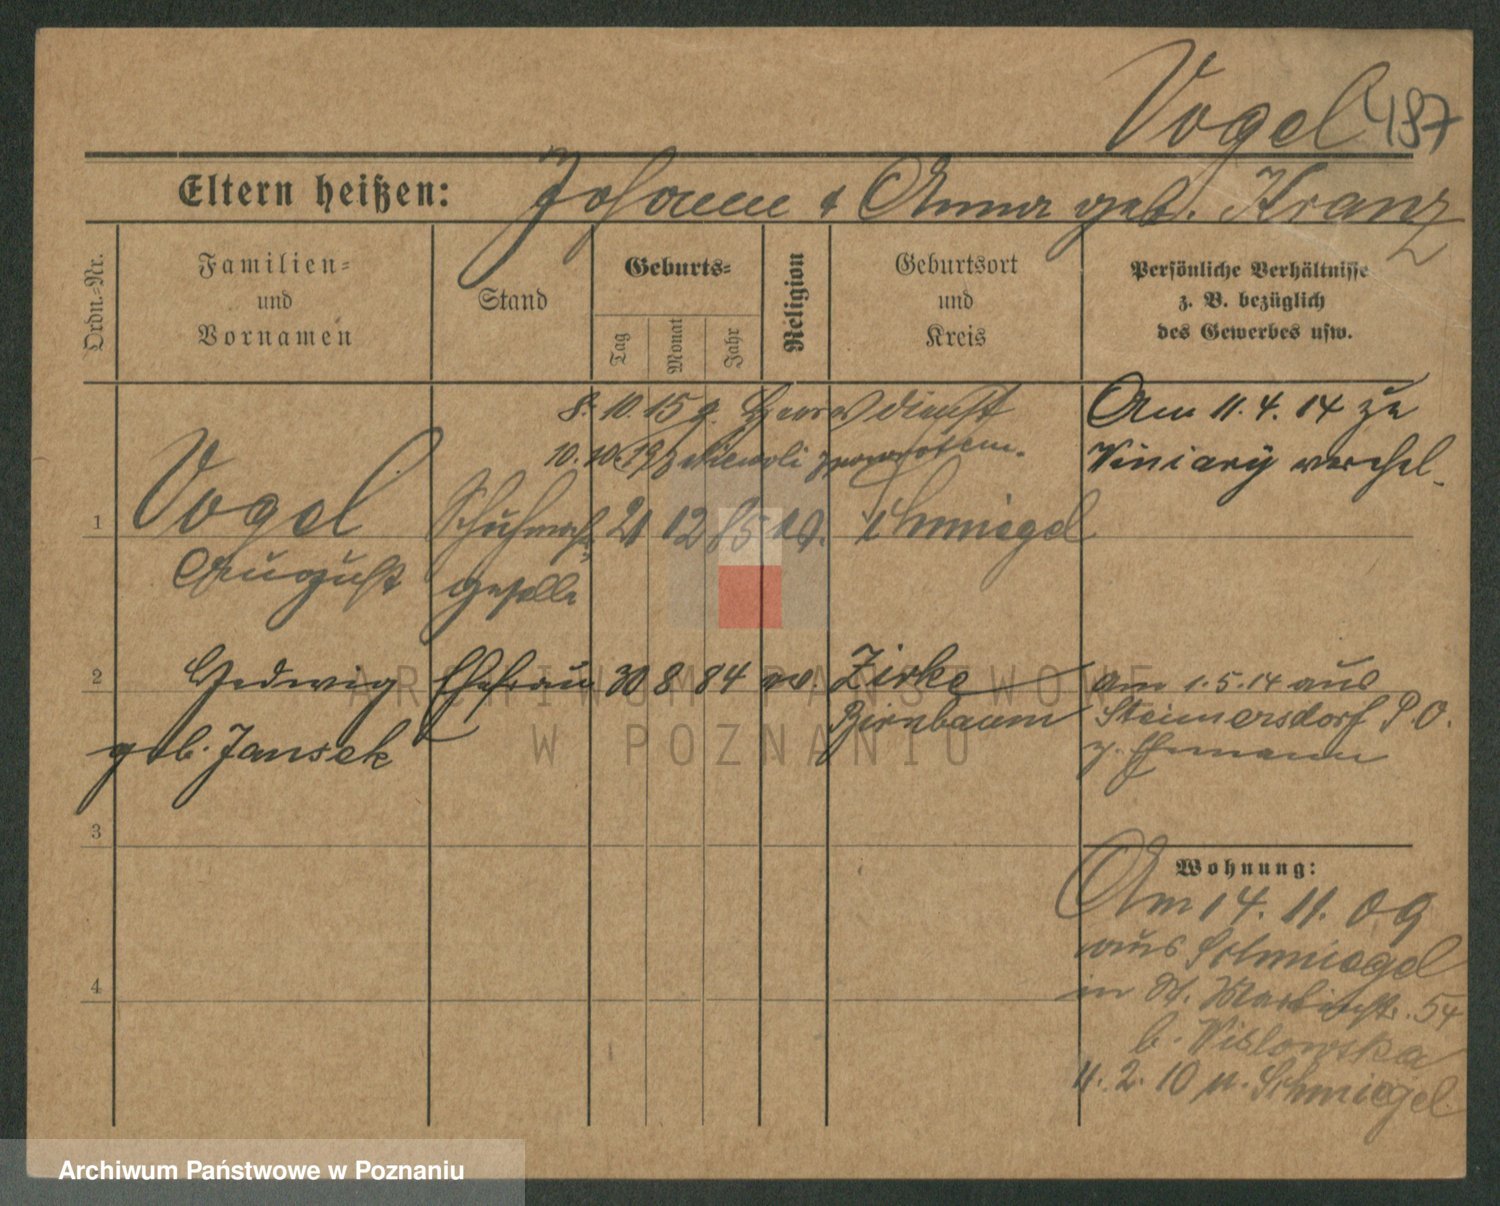 Vogel 487
Eltern heißen: Johann & Anna geb. Kranz
Ordn.-Nr.
Familien-
und
Vornamen
Stand
Geburts-
Tag
Monat
Jahr
Religion
Geburtsort
und
Kreis
Persönliche Verhältnisse
z. B. bezüglich
des Gewerbes usw.
8. 10. 15 z. Heeresdienst
10. 10. 19
Am 11. 4. 14 zu
Viniary
1 Vogel Schuhmach. 21 12 85 Schmiegel
August geselle
2 Hedwig Ehefrau 30 8 84 Zirke
geb. Jansek Birnbaum
am 1. 5. 14 aus
Steimersdorf P. O.
z. Ehemann
3
4
Wohnung:
Am 14. 11. 09
aus Schmiegel
in St. Martinstr. 54
b. Vislowska
11. 2. 10 n. Schmiegel
ARCHIWUM PAŃSTWOWE
W POZNANIU
Archiwum Państwowe w Poznaniu